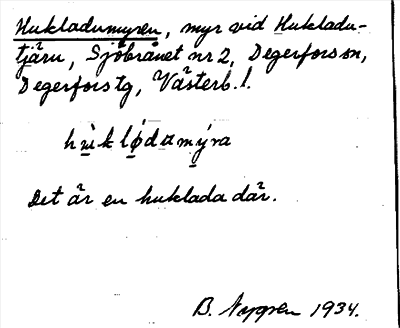 Hukladumyren, myr vid Hukladu-
tjärn, Sjöbrånet nr 2, Degerfors sn,
Degerfors tg, Västerb. l.
Det är en huklada där.
B. 1934.